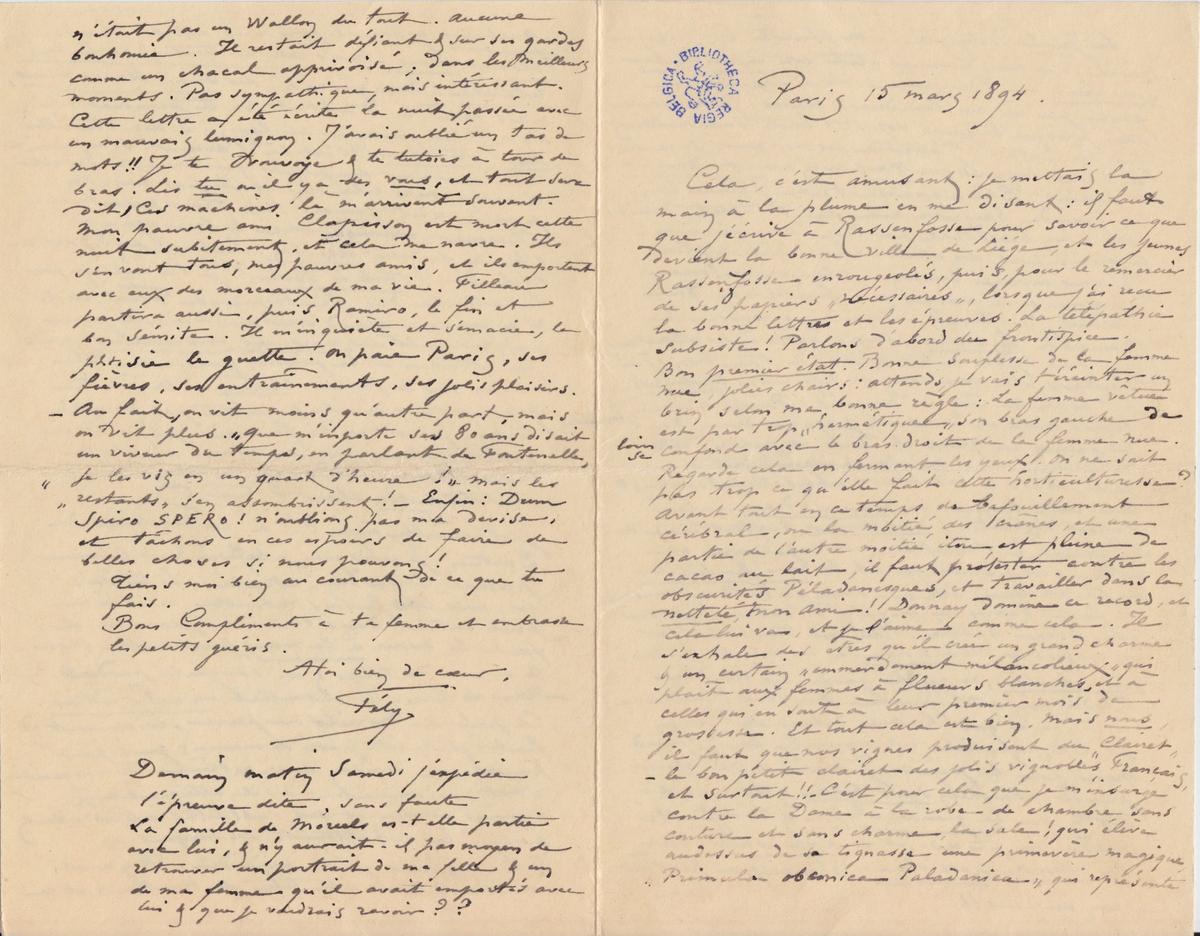 n'était pas un Wallon du tout. Aucune
bonhomie. Il restait défiant & sur ses gardes
comme un chacal apprivoisé, dans les meilleurs
moments. Pas sympathique, mais intéressant.
Cette lettre a été écrite la nuit passée avec
un mauvais lumignon. J'avais oublié un tas de
mots!! Je te & te tutoies à tour de
bras. Lis tu où il y a des vous, et tout sera
dit! Ces machines là m'arrivent souvent.
Mon pauvre ami Clapisson est mort cette
nuit subitement, et cela me navre. Ils
s'en vont tous, mes pauvres amis, et ils emportent
avec eux des morceaux de ma vie. Filleau
partira aussi, puis Ramiro, le fin et
bon sémite. Il m'inquiète et s'émacie, la
phtisie le guette. On paie Paris, ses
fièvres, ses entraînements, ses jolis plaisirs.
– Au fait, on vit moins qu'autre part, mais
on vit plus. „Que m'importe ses 80 ans disait
un viveur du temps, en parlant de Fontenelle,
„ je les vis en un quart d'heure!„ mais les
„restants„ s'en assombrissent! – Enfin: Dum
Spiro SPERO! n'oublions pas ma devise,
et tâchons en ces espoirs de faire de
belles choses si nous pouvons!
Tiens moi bien au courant de ce que tu
fais.
Bons Compliments à ta femme et embrasse
les petits guéris.
A toi bien de cœur,
Fély
Demain matin Samedi j'expédie
l'épreuve dite, sans faute
La famille de est-elle partie
avec lui, & n'y aurait-il pas moyen de
retrouver un portrait de ma fille & un
de ma femme qu'il avait emportés avec
lui & que je voudrais ravoir??
BIBLIOTHECA REGIA BELGICA
Paris 15 mars 1894.
Cela, c'est amusant: je mettais la
main à la plume en me disant: il faut
que j'écrive à Rassenfosse pour savoir ce que
devient la bonne ville de Liége, et les jeunes
Rassenfosse enrougeolés, puis, pour le remercier
de ses papiers „nécessaires„, lorsque j'ai reçu
ta bonne lettre et les épreuves! La télépathie
subsiste! Parlons d'abord du frontispice.
Bon premier état. Bonne souplesse de la femme
nue, jolies chairs: attends je vais t'éreinter un
brin selon ma bonne règle: La femme vêtue
est par trop „hermétique„, son bras gauche de
loin se confond avec le bras droit de la femme nue.
Regarde cela en fermant les yeux. On ne sait
pas trop ce qu'elle fait cette horticulteresse?
Avant tout en ce temps de bafouillement
cérébral, où la moitié des crânes, et une
partie de l'autre moitié itou, est pleine de
cacao au lait, il faut protester contre les
obscurités Péladanesques, et travailler dans la
netteté, mon ami!! Donnay domine ce record, et
cela lui vas, et je l'aime comme cela. Il
s'exhale des êtres qu'il crée un grand charme
& un certain „emmerdement mélancolieux„ qui
plait aux femmes à flueurs blanches, et à
celles qui en sont à leur premier mois de
grossesse. Et tout cela est bien. Mais nous,
il faut que nos vignes produisent du „Clairet„
– le bon petit clairet des jolis vignobles Français,
et surtout!! C'est pour cela que je m'insurge
contre la Dame à la robe de chambre sans
couture et sans charme, la sale! qui élève
audessus de sa tignasse une primevère magique
„Primula obconica Paladanica„ qui représente